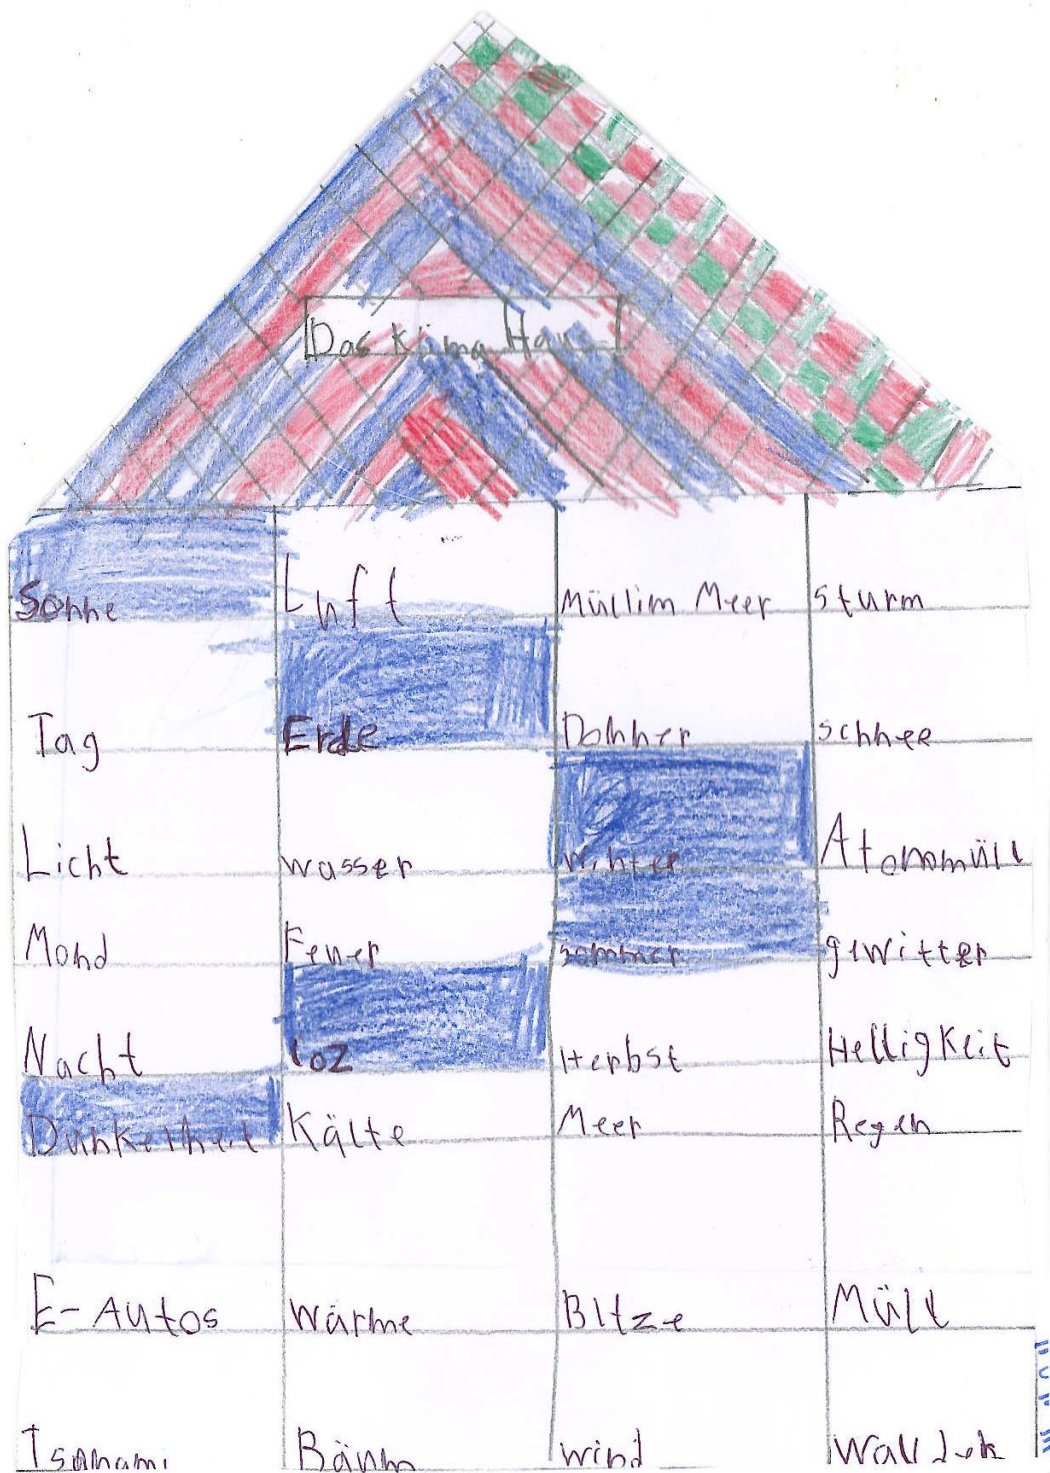 Das Klima Haus
Sonne Luft Müll im Meer Sturm
Tag Erde Donner schnee
Licht wasser Winter Atommüll
Mond Feuer sommer gewitter
Nacht Herbst Helligkeit
Dunkelheit Kälte Meer Regen
E-Autos Wärme Bltze Müll
Tsunami Bäum wind